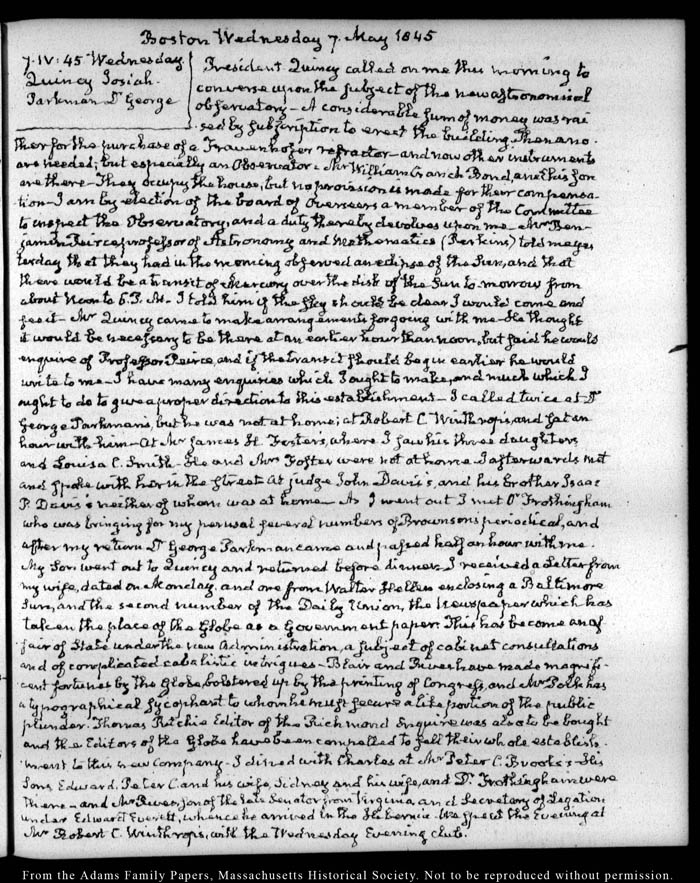 Boston Wednesday 7. May 1845
7. IV: 45 Wednesday
Quincy Josiah.
Parkman Dr George
President Quincy called on me this morning to
converse upon the subject of the new astronomical
observatory — A considerable sum of money was rai
sed by subscription to erect the building. Then ano.
ther for the purchase of a Frauenhofer refractor — and now other instruments
are needed; but especially an Observator. Mr William Cranch Bond, and his son
are there — They occupy the house, but no provision is made for their compensa-
tion — I am by election of the board of Overseers a member of the Committee
to inspect the Observatory, and a duty thereby devolves upon me. Mr Ben-
jamin Peirce, professor of Astronomy and Mathematics (Perkins) told me yes
terday that they had in the morning observed an eclipse of the Sun, and that
there would be a transit of Mercury over the disk of the Sun to morrow from
about Noon to 6. P.M. I told him if the sky should be clear I would come and
see it — Mr Quincy came to make arrangements for going with me — He thought
it would be necessary to be there at an earlier hour than noon, but said he would
enquire of Professor Peirce, and if the transit should begin earlier he would
write to me — I have many enquiries which I ought to make, and much which I
ought to do to give a proper direction to this establishment — I called twice at Dr
George Parkman's, but he was not at home; at Robert C. Winthrop's, and sat an
hour with him — At Mr James H. Foster's, where I saw his three daughters
and Louisa C. Smith — He and Mrs Foster were not at home I afterwards met
and spoke with her in the street. At judge John Davis's, and his brother Isaac
P. Davis's neither of whom was at home — As I went out I met Dr Frothingham
who was bringing for my perusal several numbers of Brownson's periodical, and
after my return Dr George Parkman came and passed half an hour with me.
My Son went out to Quincy and returned before dinner. I received a Letter from
my wife, dated on Monday, and one from Walter Hellen enclosing a Baltimore
Sun, and the second number of the Daily Union, the Newspaper which has
taken the place of the Globe as a Government paper. This has become an af
fair of State under the new Administration, a subject of cabinet consultations
and of complicated cabalistic intrigues — Blair and Rives have made magnifi-
cent fortunes by the Globe, bolstered up by the printing of Congress, and Mr Polk has
a typographical sycophant to whom he must secure a like portion of the public
plunder. Thomas Ritchie Editor of the Richmond Enquirer was also to be bought
and the Editors of the Globe have been compelled to sell their whole establish-
ment to this new Company — I dined with Charles at Mr Peter C. Brooks's — His
Sons Edward, Peter C. and his wife, Sidney and his wife, and Dr Frothingham were
there — and Mr Rives, son of the late Senator from Virginia, and Secretary of Legation
under Edward Everett, whence he arrived in the Hibernia. We spent the Evening at
Mr Robert C. Winthrop's, with the Wednesday Evening club.
From the Adams Family Papers, Massachusetts Historical Society. Not to be reproduced without permission.